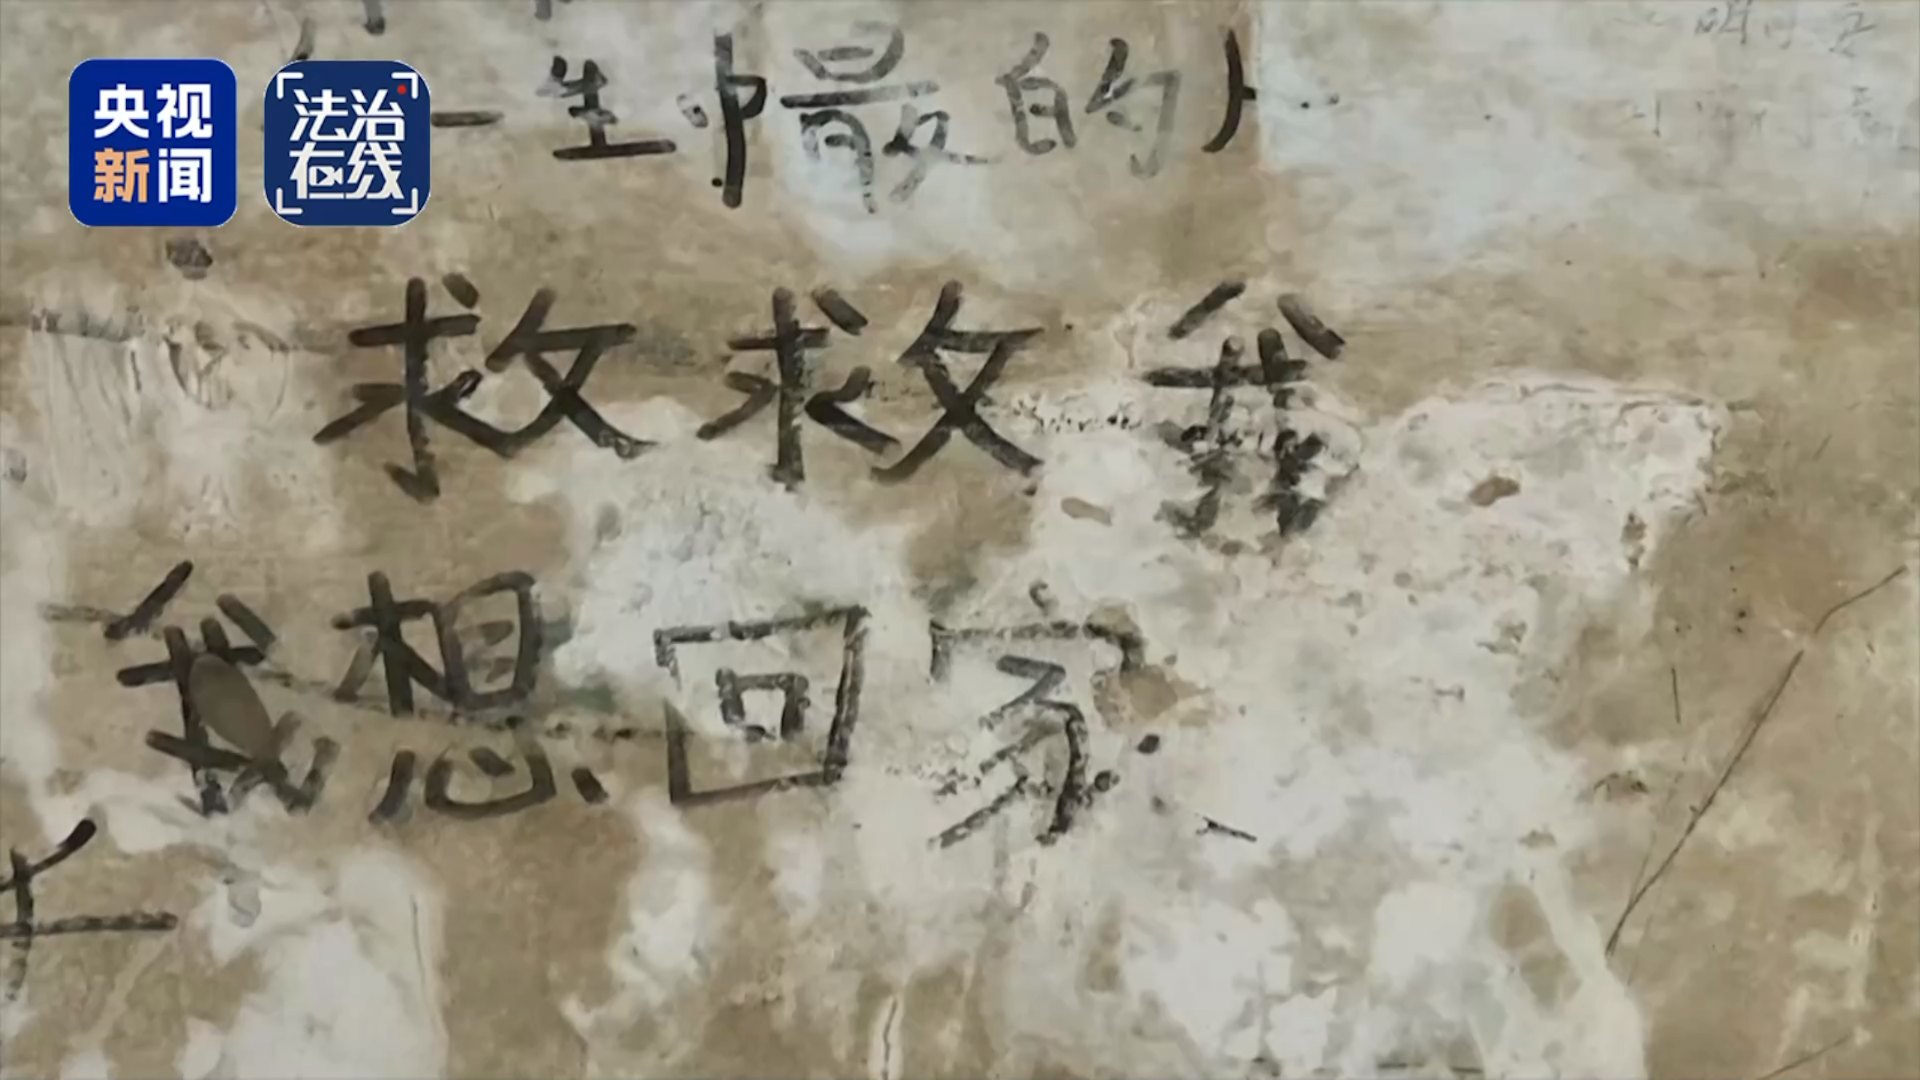 央视
新闻
法治
在线
一生中最的人
救救我
我想回家